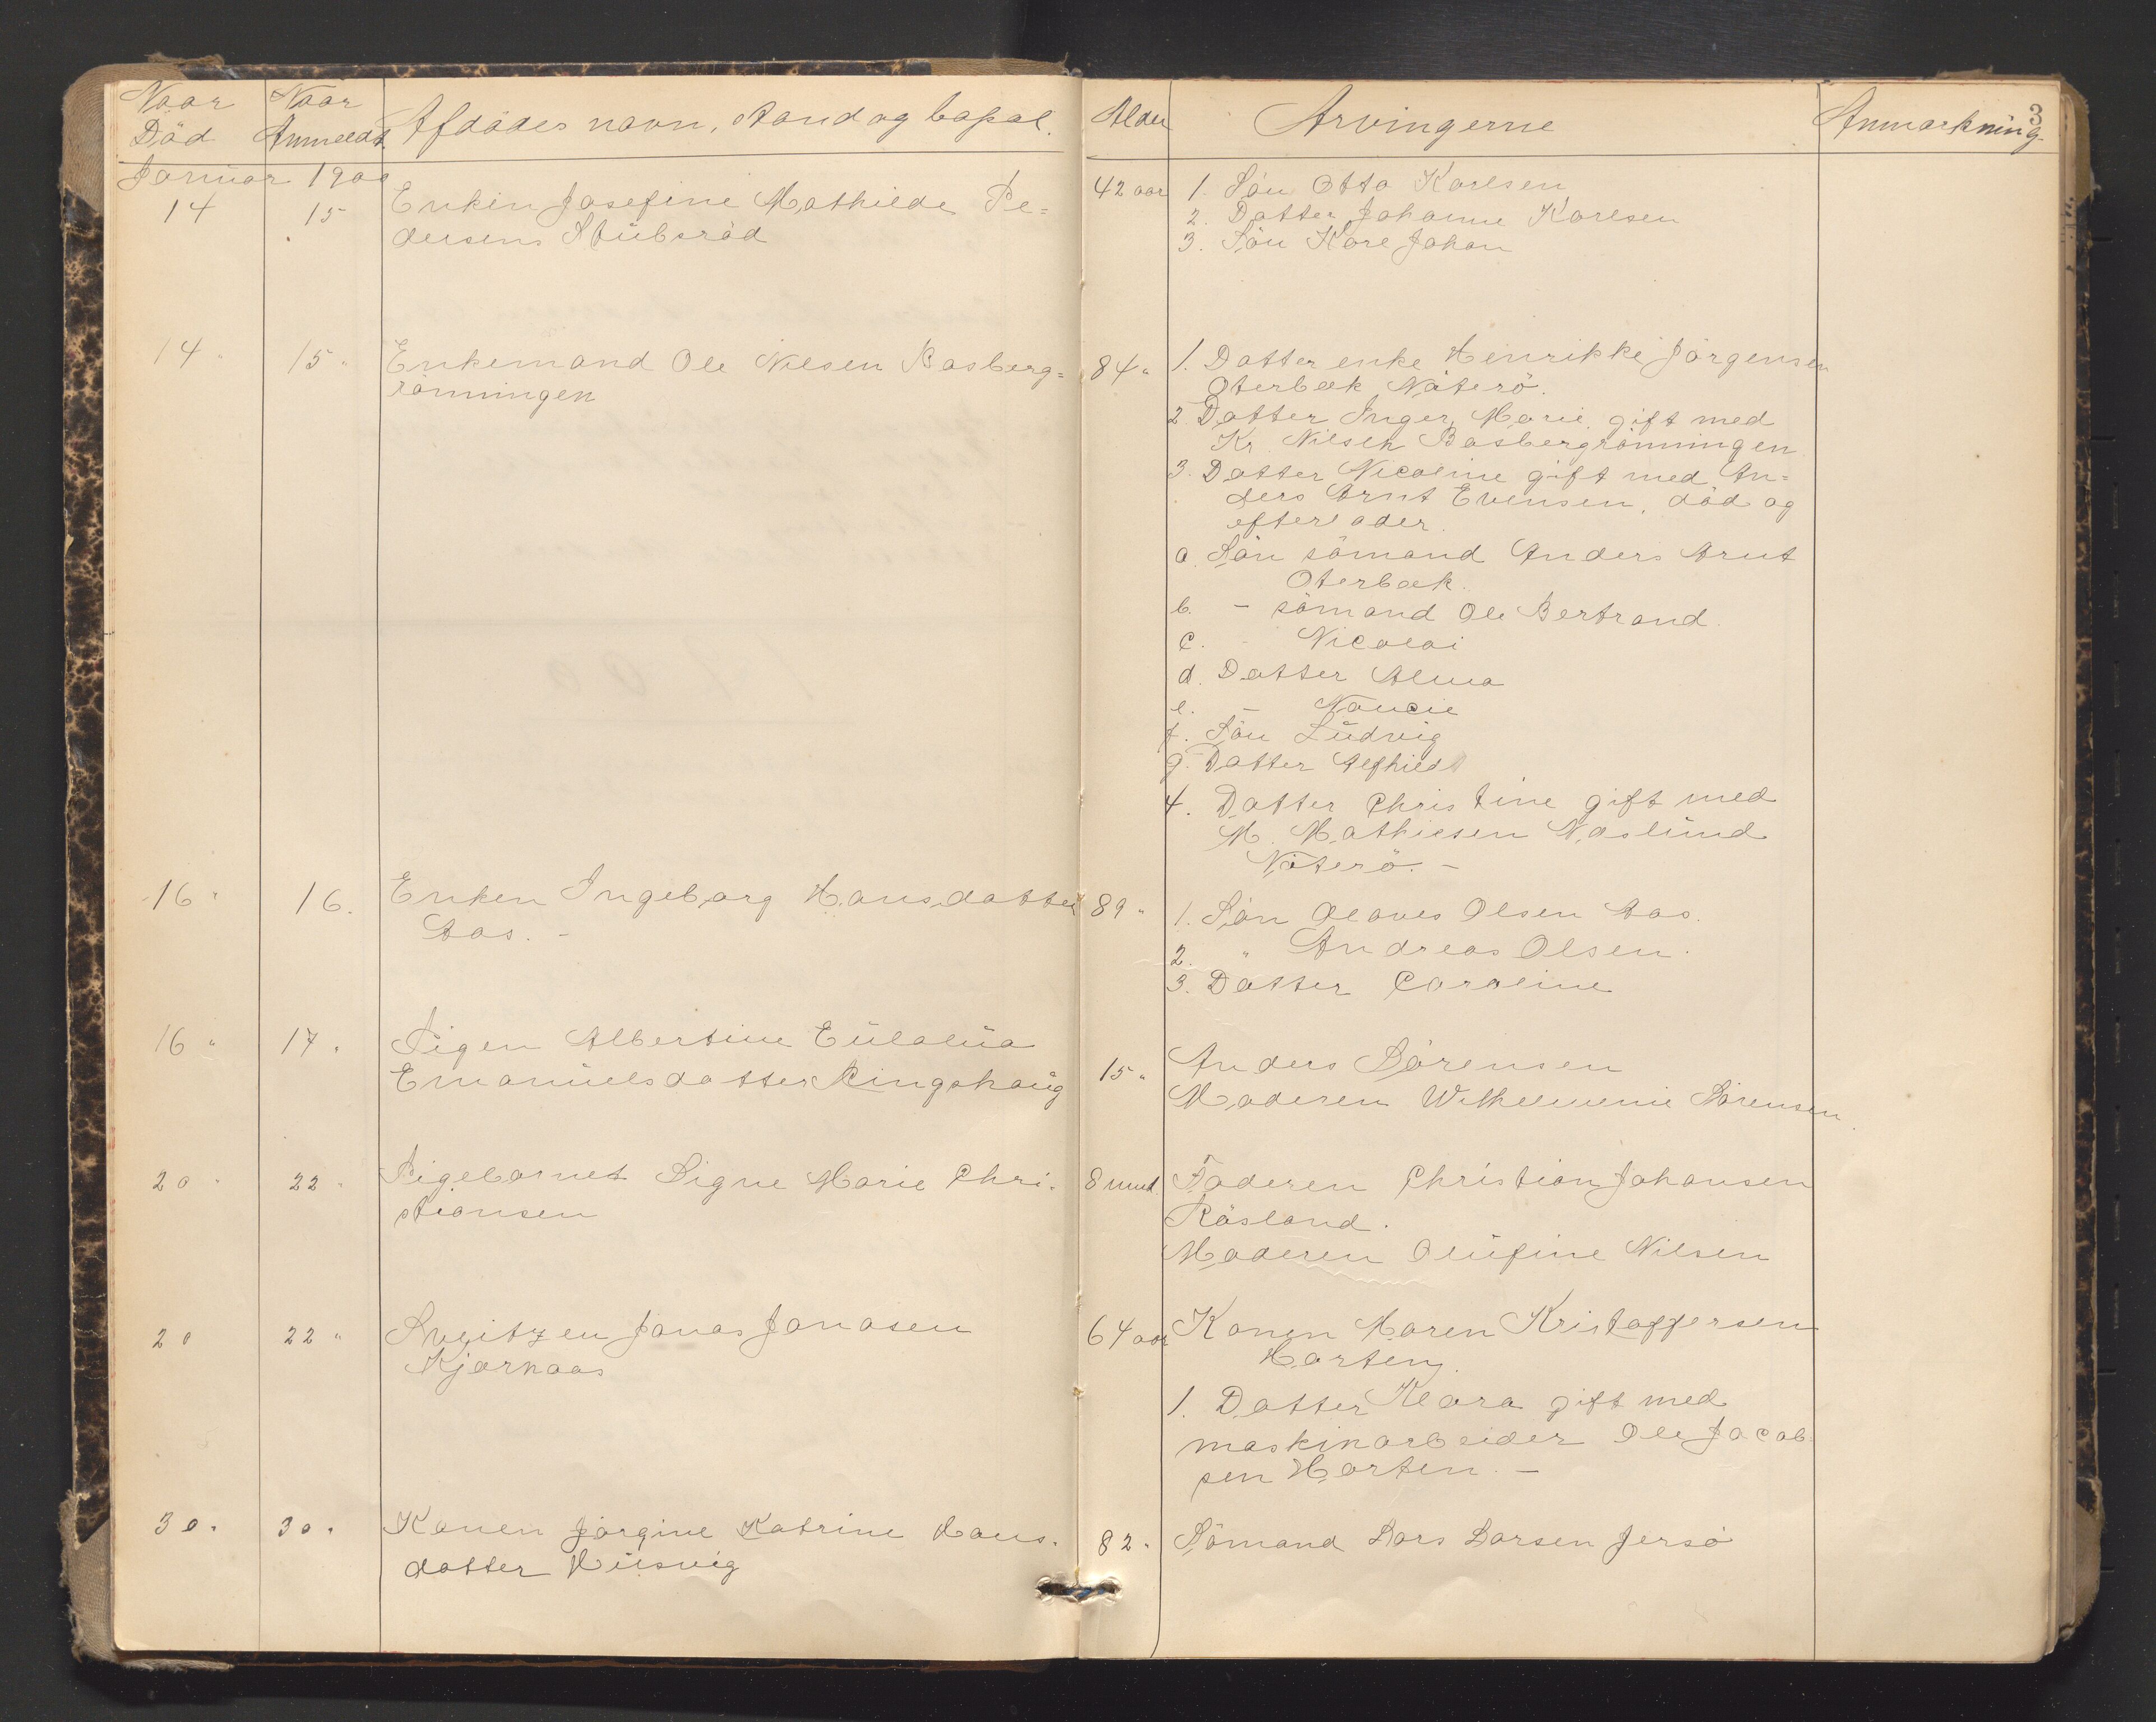 Naar Naar Afdödes navn, stand og bopæl. Alder Arvingerne Anmærkning 3
Död Anmeldt
Januar 1900
14 15 Enkin Josefine Mathilde Pe= 42 aar 1. Sön Otto Karlsen
dersens Stubsröd 2. Datter Johanne Karlsen
3. Sön Karl Johan
14 " 15 " Enkemand Ole Nilsen Basberg= 84 " 1. Datter enke Henrikke Jörgensen
rönningen Oterbæk Nöterö.
2 Datter Inger Marie gift med
Kr. Nilsen Basbergrönningen
3. Datter Nicoline gift med An=
ders Arnt Evensen, död og
efterlader.
a. Sön sömand Anders Arnt
Oterbæk.
b. - sömand Ole Bertrand.
c. - Nicolai
d. Datter Alma
e. - Nancie
f. Sön Ludvig
g. Datter Alfhild
4. Datter Christine gift med
M. Mathisen Næslund
Nöterö. -
16 " 16. Enken Ingeborg Hansdatter 89 " 1. Sön Olaves Olsen Aas.
Aas. - 2. " Andreas Olsen.
3. Datter Caroline
16 " 17 " Pigen Albertine Eulalia 15 " Anders Sörensen
Emanuelsdatter Ringshaug Moderen Wilhelmine Sörensen
20 " 22 " Pigebarnet Signe Marie Chri- 8 mnd. Faderen Christian Johansen
stiansen Råsland.
Moderen Olufine Nilsen
20 22 " Jonas Jonasen 64 aar Konen Maren Kristoffersen
Kjærnaas Horten.
1. Datter Klara gift med
maskinarbeider Ole Jacob-
sen Horten. -
30 " 30 " Konen Jörgine Katrine Hans- 82 " Sömand Lars Larsen Jersö
datter Husvig